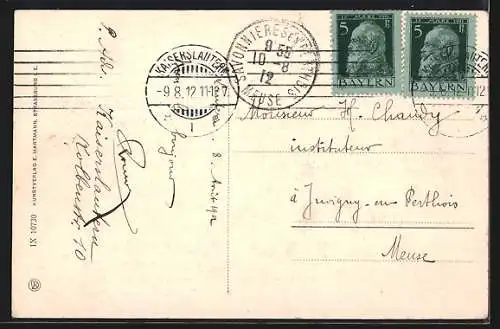 5 5
BAYERN BAYERN
KAISERSLAUTERN
-9.8.12.11-12.V.
1
SAVONNIERES-EN-PERTHOIS
8 55
10 -8
12
MEUSE
Kaiserslautern
8 Août 1912
bonjour
Kaiserslautern
Kolbenstr. 10
Monsieur H. Chaudy
instituteur
à Juvigny-en Perthois
Meuse
KUNSTVERLAG E. HARTMANN, STRASSBURG I. E.
IX 10730